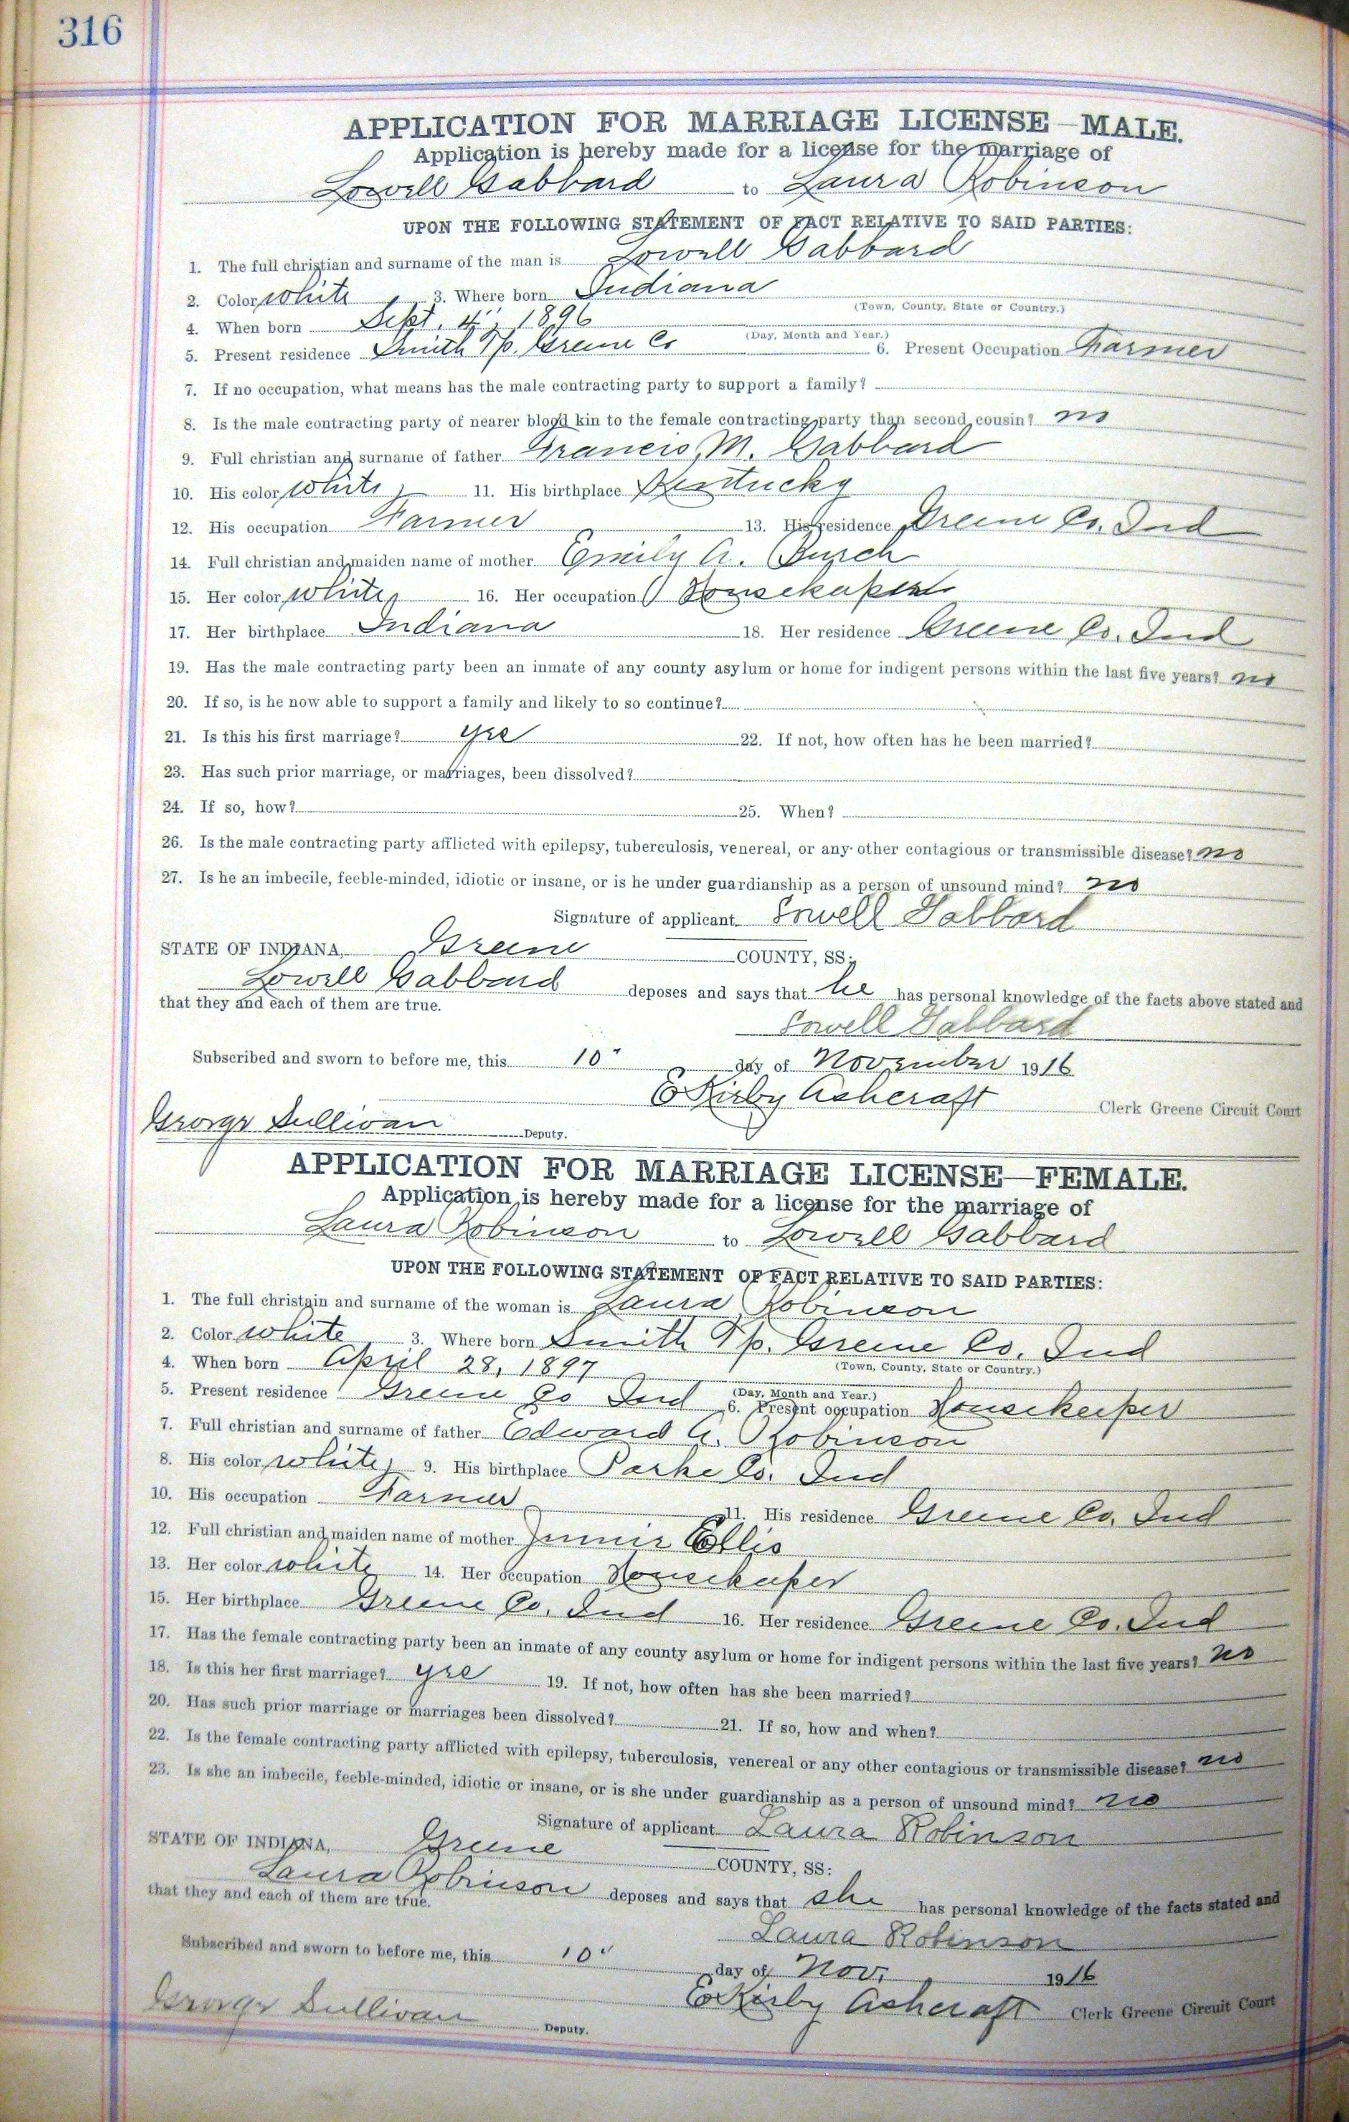 316
APPLICATION FOR MARRIAGE LICENSE—MALE.
Application is hereby made for a license for the marriage of
Lowell Gabbard to Laura Robinson
UPON THE FOLLOWING STATEMENT OF FACT RELATIVE TO SAID PARTIES:
1. The full christian and surname of the man is Lowell Gabbard
2. Color white 3. Where born Indiana
(Town, County, State or Country.)
4. When born Sept. 4", 1896
(Day, Month and Year.)
5. Present residence Smith Tp. Greene Co 6. Present Occupation Farmer
7. If no occupation, what means has the male contracting party to support a family?
8. Is the male contracting party of nearer blood kin to the female contracting party than second cousin? no
9. Full christian and surname of father Francis M. Gabbard
10. His color white 11. His birthplace Kentucky
12. His occupation Farmer 13. His residence Greene Co. Ind
14. Full christian and maiden name of mother Emily A. Burch
15. Her color white 16. Her occupation Housekeeper
17. Her birthplace Indiana 18. Her residence Greene Co. Ind
19. Has the male contracting party been an inmate of any county asylum or home for indigent persons within the last five years? no
20. If so, is he now able to support a family and likely to so continue?
21. Is this his first marriage? yes 22. If not, how often has he been married?
23. Has such prior marriage, or marriages, been dissolved?
24. If so, how? 25. When?
26. Is the male contracting party afflicted with epilepsy, tuberculosis, venereal, or any other contagious or transmissible disease? no
27. Is he an imbecile, feeble-minded, idiotic or insane, or is he under guardianship as a person of unsound mind? no
Signature of applicant Lowell Gabbard
STATE OF INDIANA, Greene COUNTY, SS:
Lowell Gabbard deposes and says that he has personal knowledge of the facts above stated and
that they and each of them are true.
Lowell Gabbard
Subscribed and sworn to before me, this 10" day of November 1916
E Kirby Ashcraft Clerk Greene Circuit Court
George Sullivan Deputy.
APPLICATION FOR MARRIAGE LICENSE—FEMALE.
Application is hereby made for a license for the marriage of
Laura Robinson to Lowell Gabbard
UPON THE FOLLOWING STATEMENT OF FACT RELATIVE TO SAID PARTIES:
1. The full christain and surname of the woman is Laura Robinson
2. Color white 3. Where born Smith Tp. Greene Co. Ind
(Town, County, State or Country.)
4. When born April 28, 1897
(Day, Month and Year.)
5. Present residence Greene Co Ind 6. Present occupation Housekeeper
7. Full christian and surname of father Edward A. Robinson
8. His color white 9. His birthplace Parke Co. Ind
10. His occupation Farmer 11. His residence Greene Co. Ind
12. Full christian and maiden name of mother Jennie Ellis
13. Her color white 14. Her occupation Housekeeper
15. Her birthplace Greene Co. Ind 16. Her residence Greene Co. Ind
17. Has the female contracting party been an inmate of any county asylum or home for indigent persons within the last five years? no
18. Is this her first marriage? yes 19. If not, how often has she been married?
20. Has such prior marriage or marriages been dissolved? 21. If so, how and when?
22. Is the female contracting party afflicted with epilepsy, tuberculosis, venereal or any other contagious or transmissible disease? no
23. Is she an imbecile, feeble-minded, idiotic or insane, or is she under guardianship as a person of unsound mind? no
Signature of applicant Laura Robinson
STATE OF INDIANA, Greene COUNTY, SS:
Laura Robinson deposes and says that she has personal knowledge of the facts stated and
that they and each of them are true.
Laura Robinson
Subscribed and sworn to before me, this 10" day of Nov. 1916
E Kirby Ashcraft Clerk Greene Circuit Court
George Sullivan Deputy.